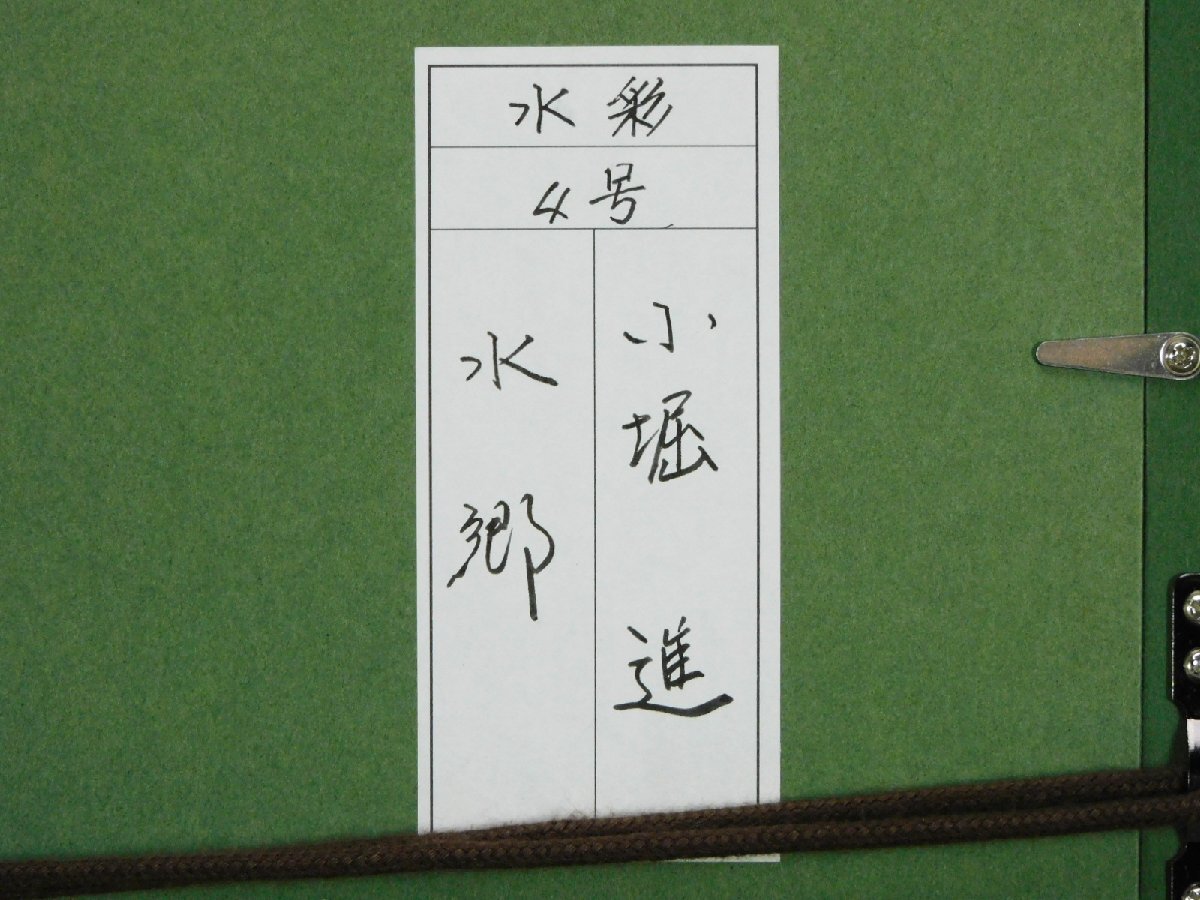 水彩
4号
小堀進
水郷